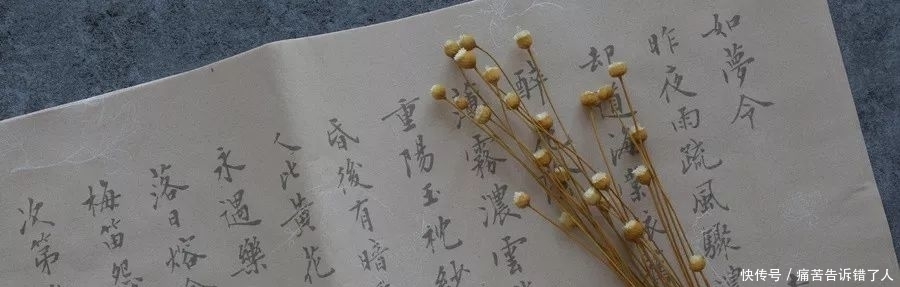 如夢令
昨夜雨疏風驟濃
却道海棠依
醉
薄霧濃雲
重陽玉枕紗
昏後有暗
人比黃花
永遇樂
落日熔
梅笛怨
次第
快传号 / 痛苦告诉错了人